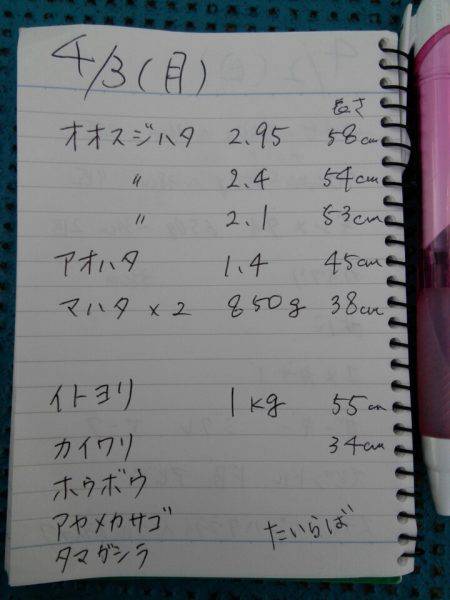 4/3(月)
長さ
オオスジハタ 2.95 58cm
〃 2.4 54cm
〃 2.1 53cm
アオハタ 1.4 45cm
マハタ×2 850g 38cm
イトヨリ 1kg 55cm
カイワリ 34cm
ホウボウ
アヤメカサゴ たいらば
タマガシラ